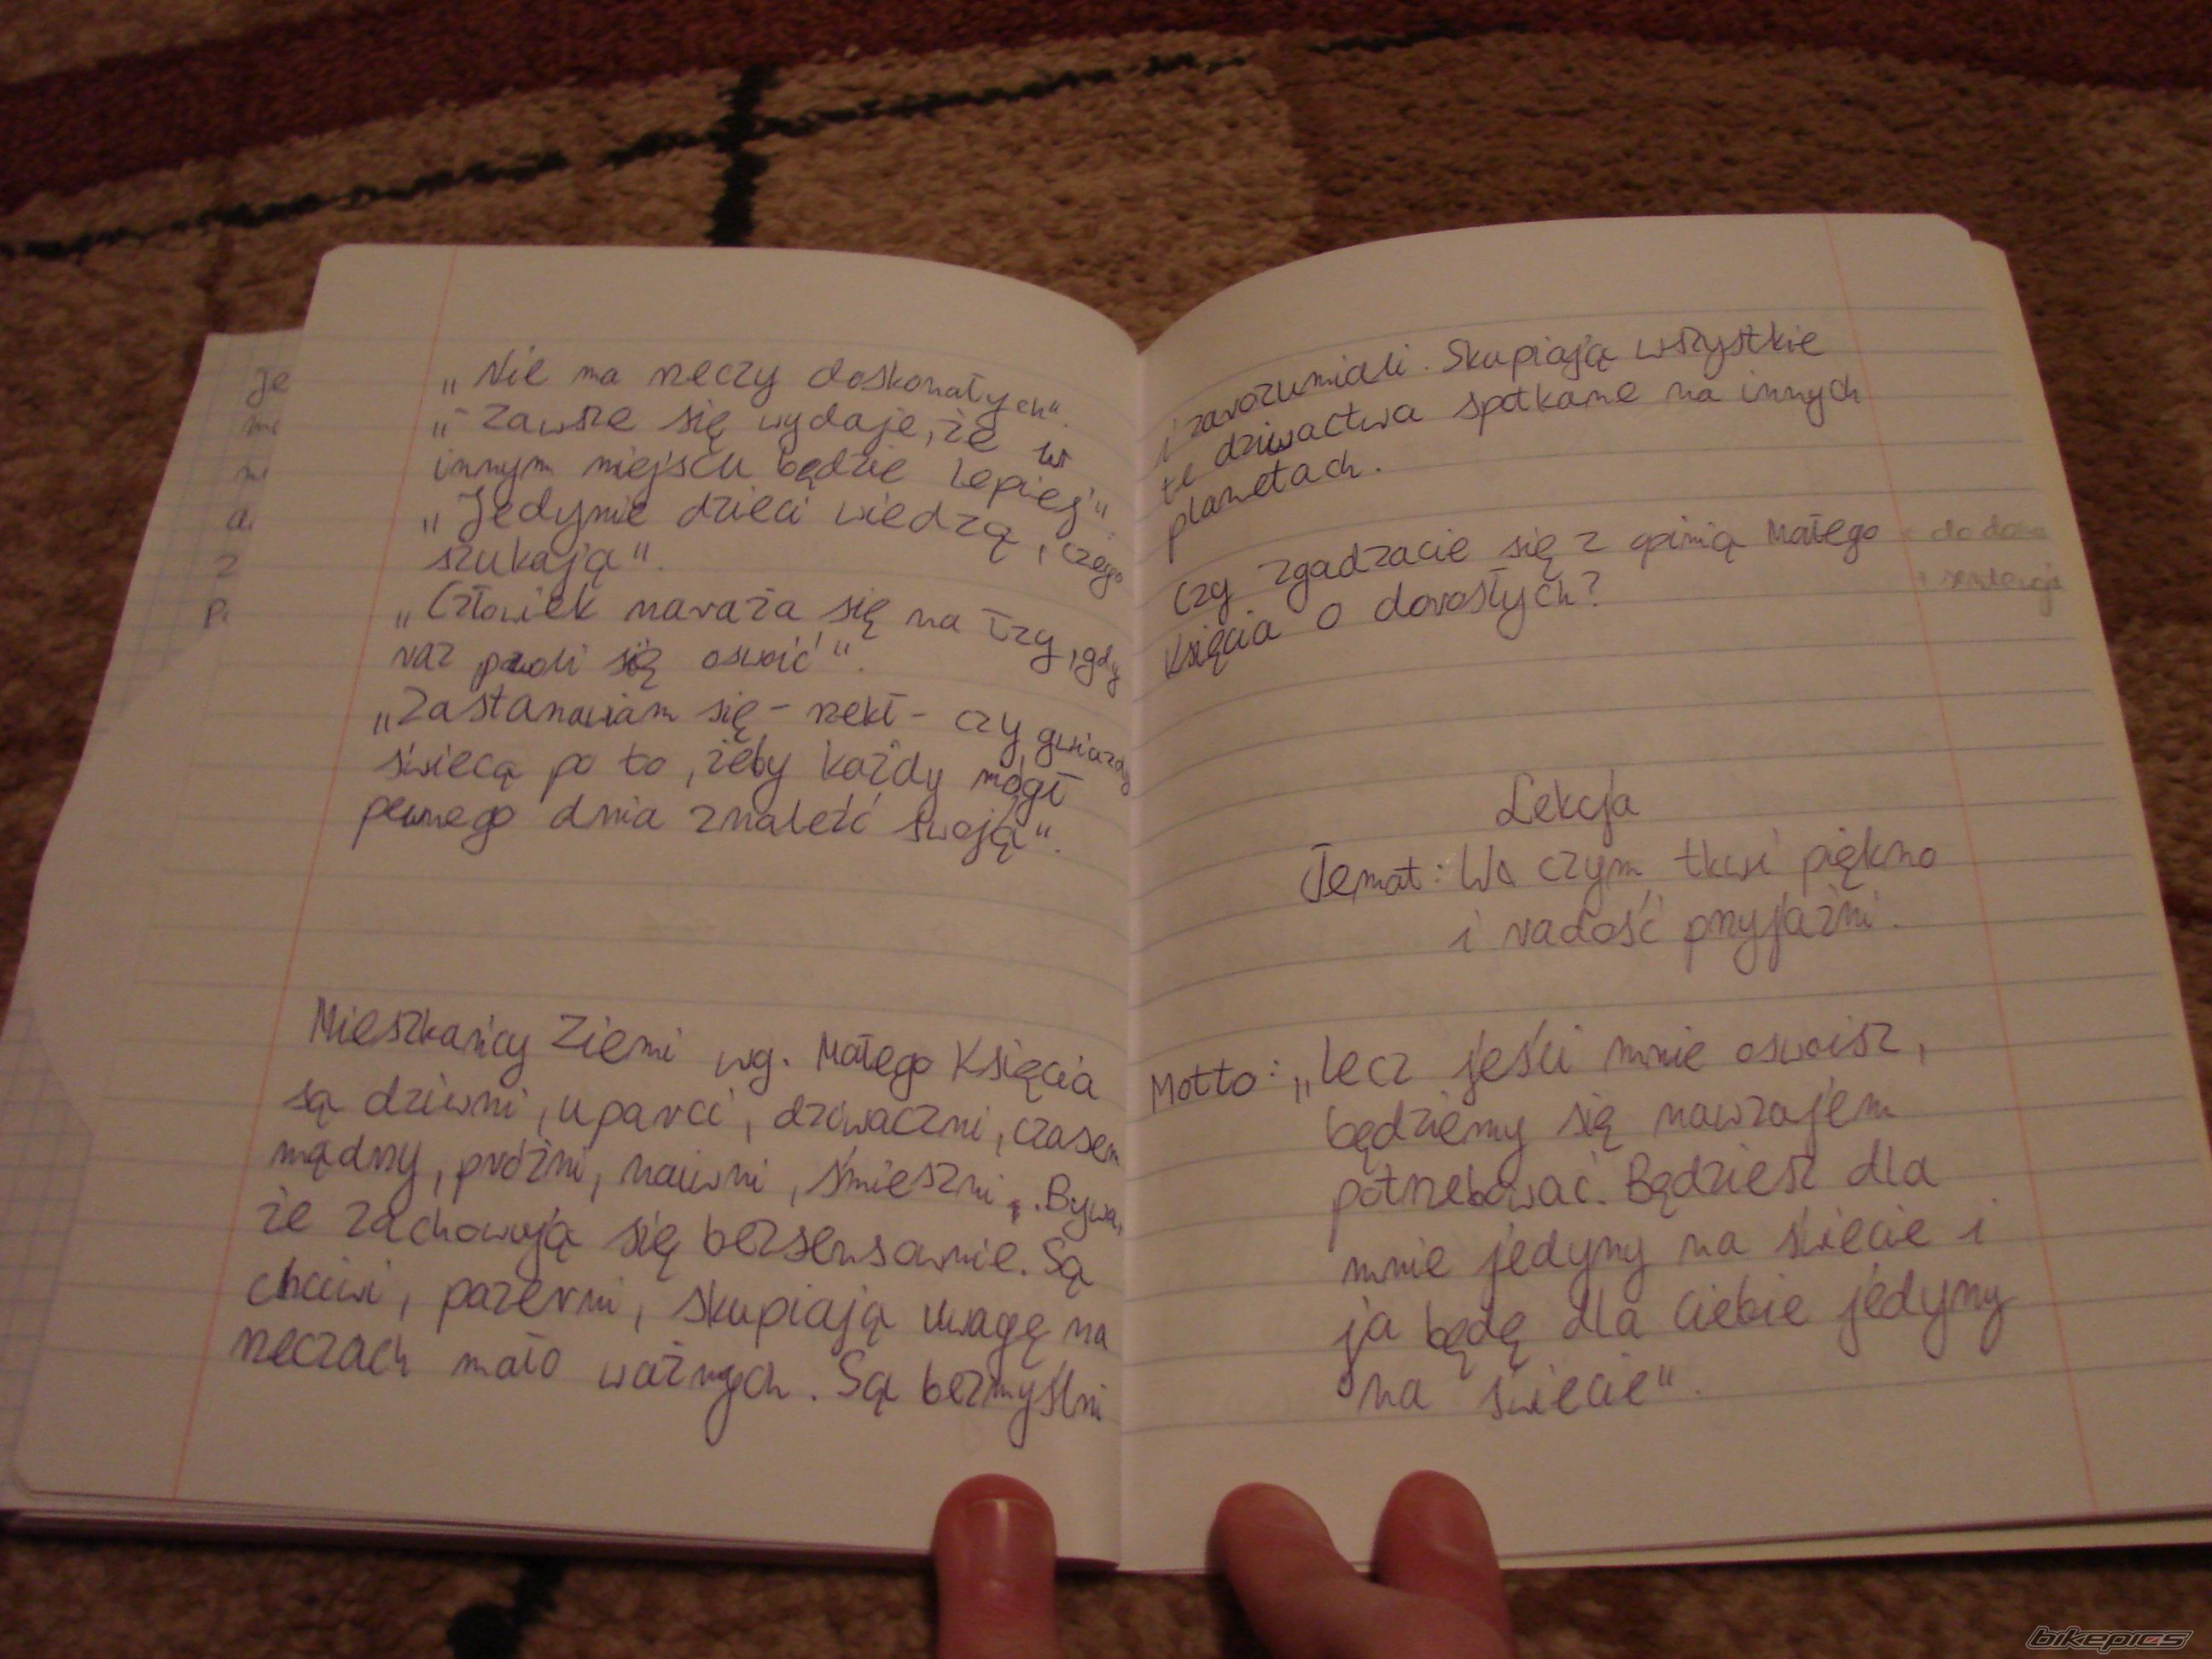 Je
„Nie ma rzeczy doskonałych".
„Zawsze się wydaje, że w
innym miejscu będzie lepiej".
„Jedynie dzieci wiedzą, czego
szukają".
„Człowiek naraża się na łzy, gdy
raz pozwoli się oswoić".
„Zastanawiam się - rzekł - czy gwiazdy
świecą po to, żeby każdy mógł
pewnego dnia znaleźć swoją".
Mieszkańcy Ziemi wg. Małego Księcia
są dziwni, uparci, dziwaczni, czasem
mądrzy, próżni, naiwni, śmieszni. Bywa,
że zachowują się bezsensownie. Są
chciwi, pazerni, skupiają uwagę na
rzeczach mało ważnych. Są bezmyślni
i zarozumiali. Skupiają wszystkie
te dziwactwa spotkane na innych
planetach.
Czy zgadzacie się z opinią Małego
Księcia o dorosłych?
Lekcja
Temat: W czym tkwi piękno
i radość przyjaźni.
Motto: „Lecz jeśli mnie oswoisz,
będziemy się nawzajem
potrzebować. Będziesz dla
mnie jedyny na świecie i
ja będę dla Ciebie jedyny
na świecie".
bikepics